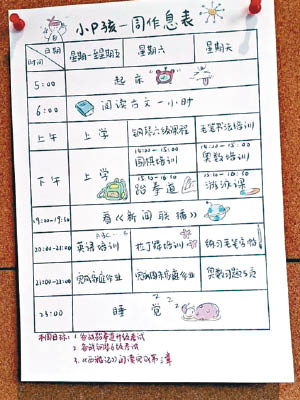 小P孩一周作息表
日期
时间
星期一至星期五
星期六
星期天
5:00
起床
6:00
阅读古文一小时
上午
上学
钢琴六级课程
毛笔书法培训
下午
上学
14:00-15:00
围棋培训
14:00-15:00
奥数培训
15:10-16:50
跆拳道
15:10-16:50
游泳课
19:00-19:30
看《新闻联播》
20:00-21:00
ABC
英语培训
拉丁舞培训
练习毛笔字帖
21:00-22:00
完成家庭作业
完成周末家庭作业
奥数习题5页
23:00
睡觉
本周目标:
1. 备战跆拳道升级考试
2. 备战钢琴6级考试
3.《西游记》阅读完成第三章